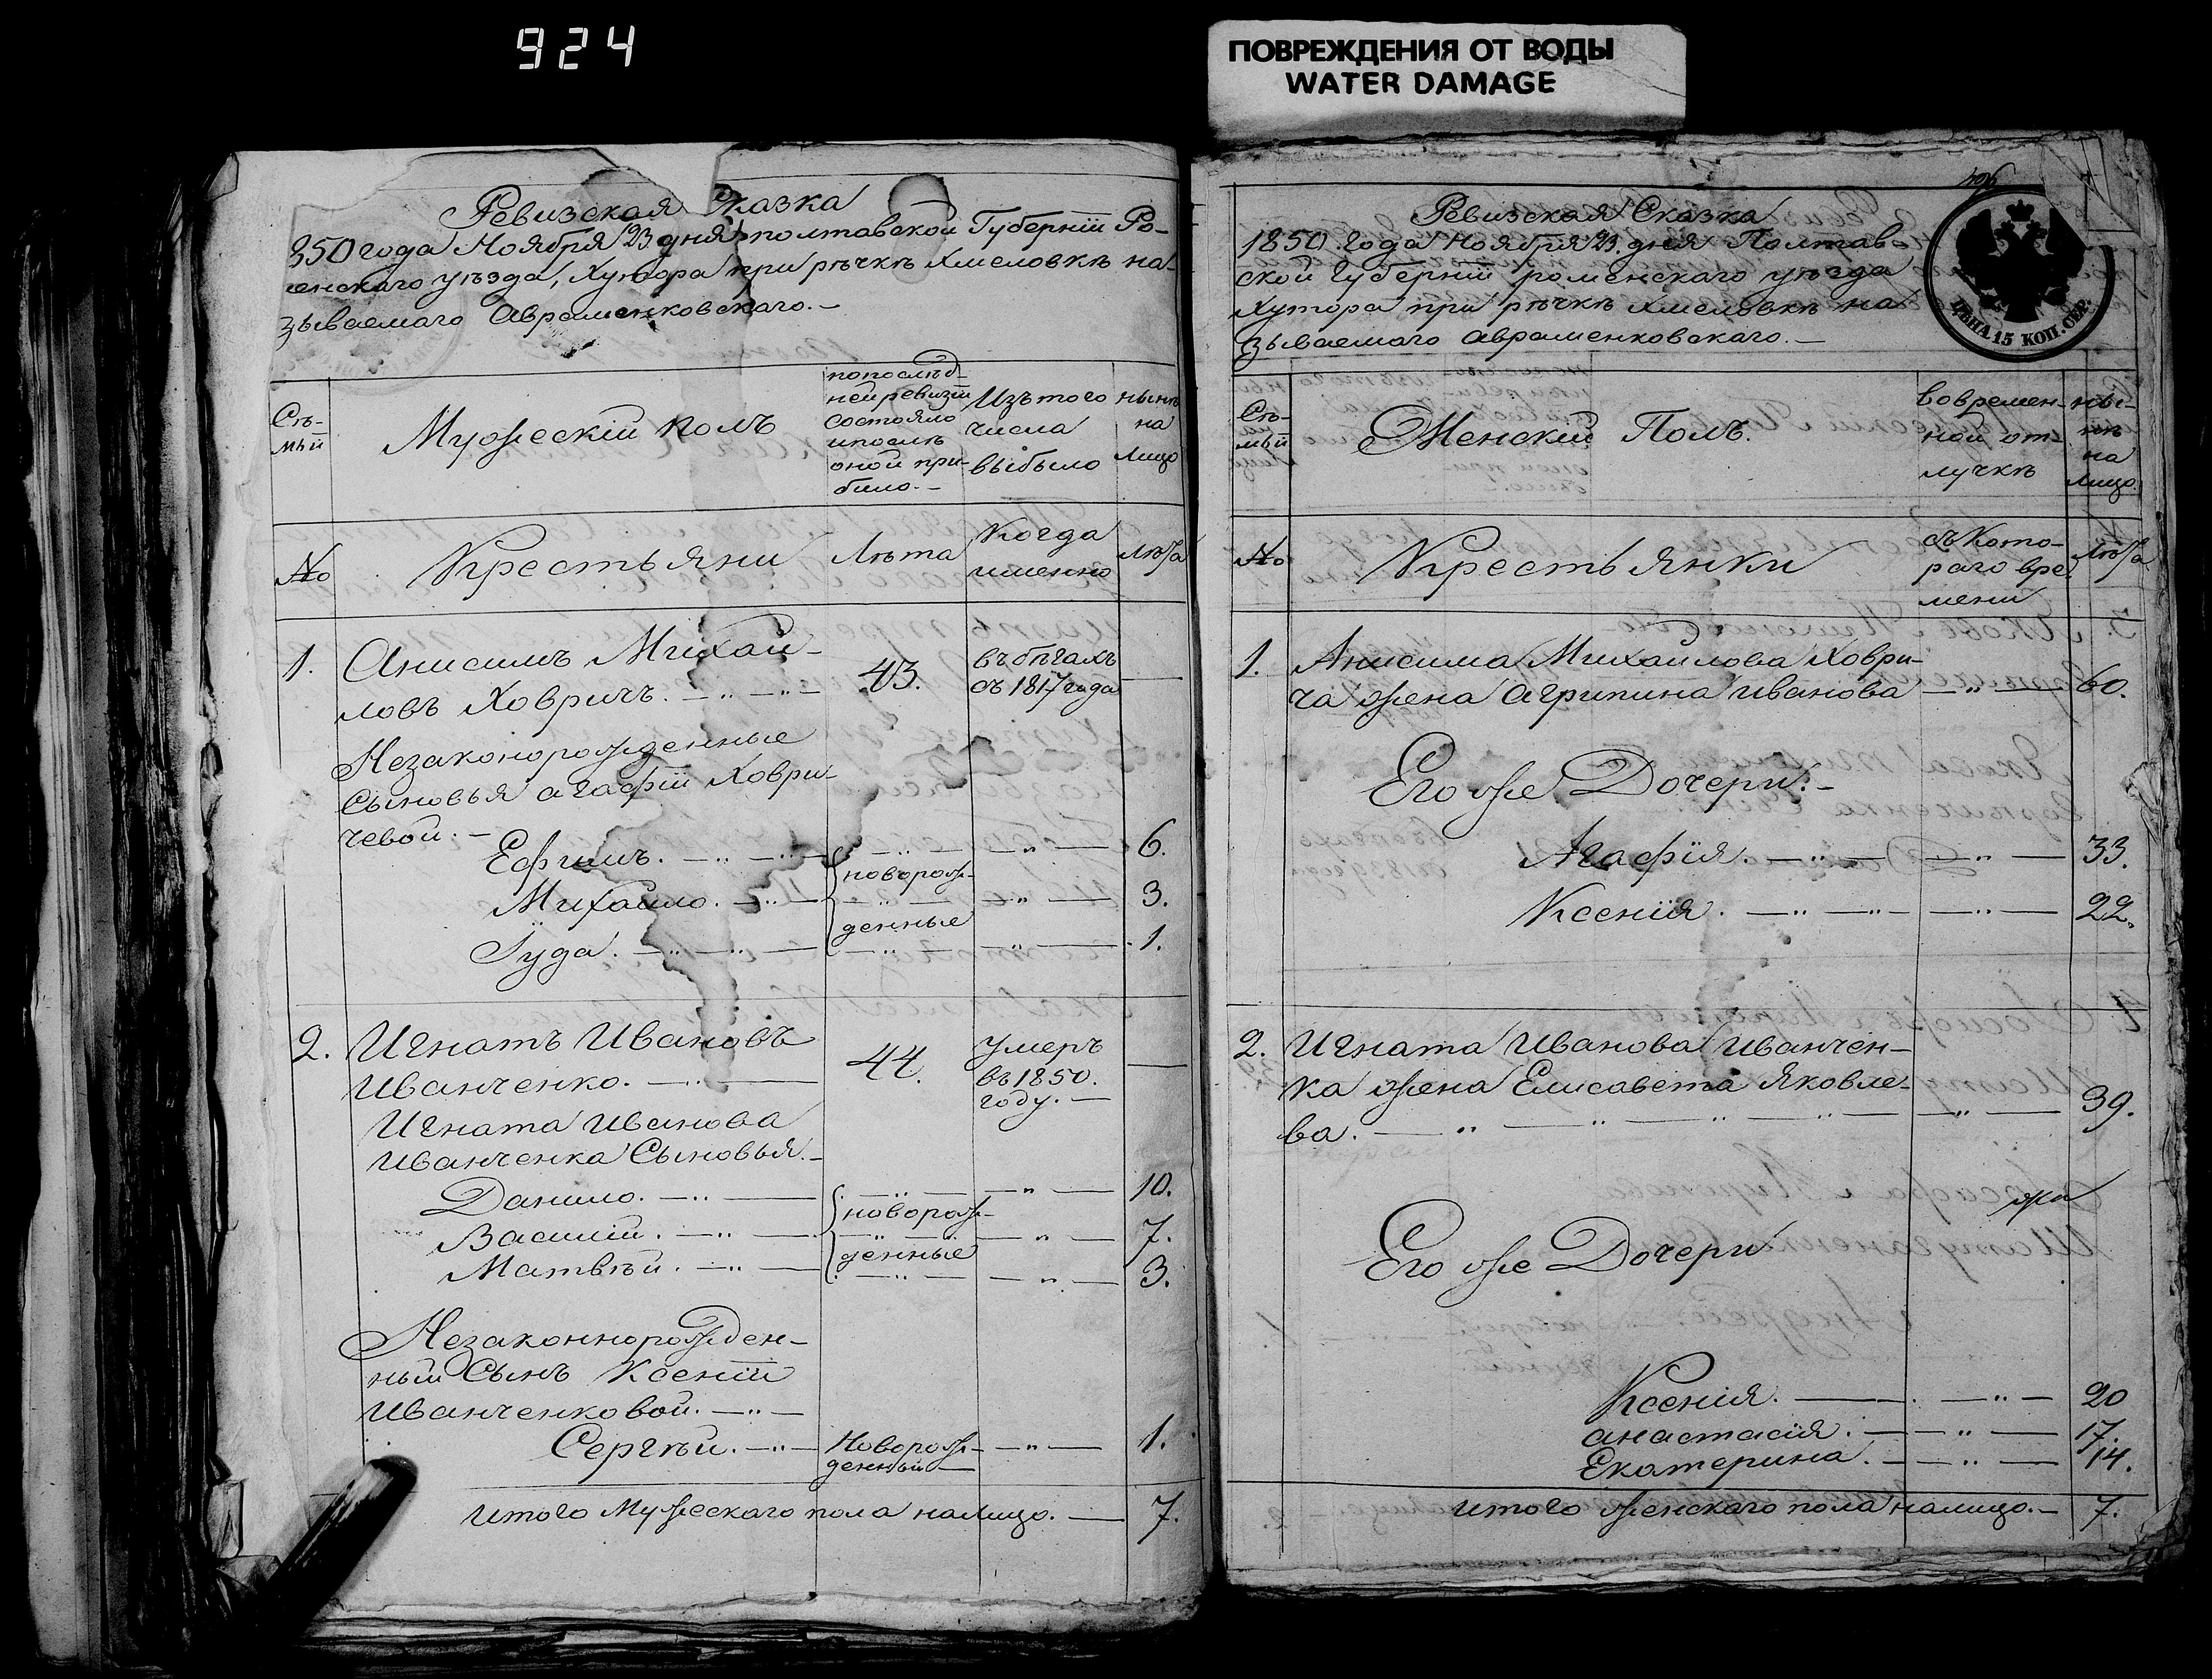 924
ПОВРЕЖДЕНИЯ ОТ ВОДЫ
WATER DAMAGE
Ревизская Сказка
850 года Ноября 23 дня полтавской Губерніи Ро-
енскаго уѣзда, Хутора при рѣчкѣ Хмеловкѣ на-
зываемаго Авраменковскаго.—
Сѣ-
мьи
Мужескій полъ
попослѣд-
ней ревизіи
состояло
и послѣ
оной при-
было.—
Изъ того
числа
выбыло
нынѣ
на
лицо
№
Крестьяни
Лѣта
Когда
именно
Лѣта
1. Анисимъ Михай-
ловъ Ховричъ. — 43. въ бѣгахъ
съ 1817 года —
Незаконорожденные
Сыновья агафіи Ховри-
чевой.—
Ефимъ. — новорож- — 6.
Михайло. — 3.
Іуда. — денные — 1.
2. Игнатъ Ивановъ
Иванченко. — 44. Умеръ
въ 1850.
году. —
Игната Иванова
Иванченка Сыновья.—
Данило. — новорож- — 10.
Василій. — 7.
Матвѣй. — денные — 3.
Незаконнорожден-
ный Сынъ Ксеніи
Иванченковой. —
Сергѣй. — Новорож-
денный — 1.
итого Мужескаго пола налицо. — 7.
Ревизская Сказка
1850 года ноября 23 дня Полтав-
ской Губерніи роменскаго уѣзда
Хутора при рѣчкѣ Хмеловкѣ на
зываемаго авраменковскаго.—
ЦѢНА 15 КОП. СЕР.
Сѣ-
мьи
Женскій Полъ.
во времен-
ной от-
лучкѣ
ны-
нѣ
на
лицо
№
Крестьянки
съ Кото-
раго вре
мени
Лѣта
1. Анисима Михайлова Ховри-
ча жена Агрипина Иванова — 60.
Его же Дочери:—
Агафія. — 33.
Ксенія. — 22.
2. Игната Иванова Иванчен-
ка жена Елисавета Яковле-
ва. — 39.
Его же Дочери
Ксенія. — 20
анастасія. — 17.
Екатерина. — 14.
итого женскаго пола налицо.— 7.